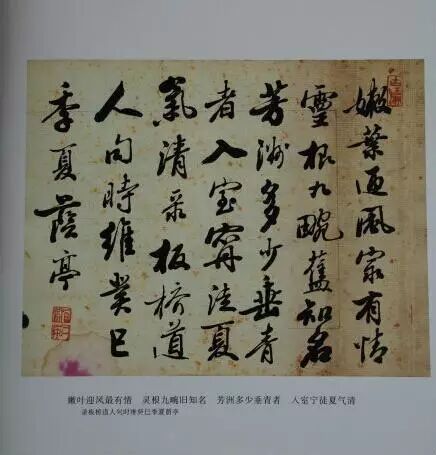 嫩葉迎風㝡有情
靈根九畹舊知名
芳洲多少垂青
者入室寧徒夏
氣清录板橋道
人句時維癸巳
季夏蔭亭
嫩叶迎风最有情 灵根九畹旧知名 芳洲多少垂青者 入室宁徒夏气清
录板桥道人句时维癸巳季夏荫亭